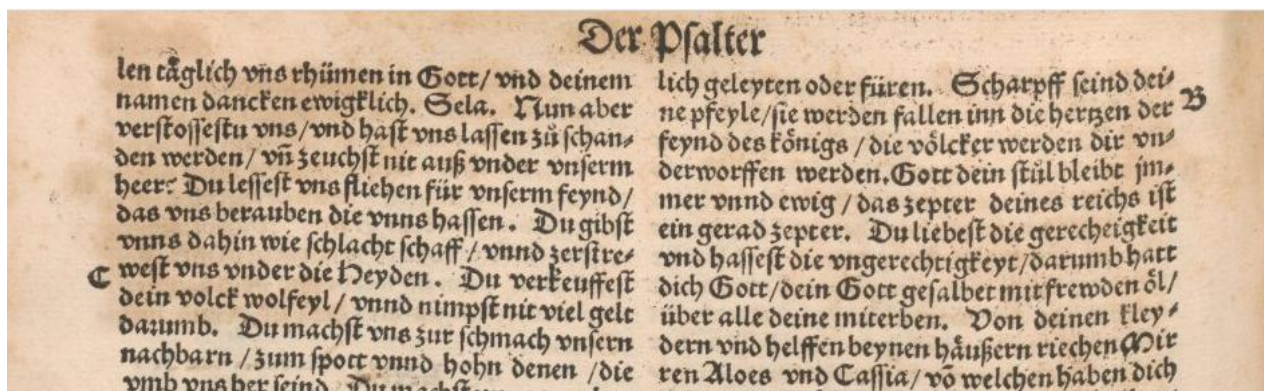 Der Psalter
len täglich vns rhümen in Gott/ vnd deinem
namen dancken ewigklich. Sela. Nun aber
verstossestu vns/vnd hast vns lassen zů schan⸗
den werden/ vñ zeuchst nit auß vnder vnserm
heer: Du lessest vns fliehen für vnserm feynd/
das vns berauben die vnns hassen. Du gibst
vnns dahin wie schlacht schaff/ vnnd zerstre⸗
C west vns vnder die Heyden. Du verkeuffest
dein volck wolfeyl/ vnnd nimpst nit viel gelt
darumb. Du machst vns zur schmach vnsern
nachbarn/zum spott vnnd hohn denen/die
vmb vns her seind. Du machst
lich geleyten oder füren. Scharpff seind dei⸗
ne pfeyle/sie werden fallen inn die hertzen der B
feynd des königs/die völcker werden dir vn⸗
derworffen werden. Gott dein stůl bleibt jm⸗
mer vnnd ewig/das zepter deines reichs ist
ein gerad zepter. Du liebest die gerecheigkeit
vnd hassest die vngerechtigkeyt/darumb hatt
dich Gott/dein Gott gesalbet mit frewden öl/
über alle deine miterben. Von deinen kley⸗
dern vnd helffenbeynen häußern riechen Mir
ren Aloes vnd Cassia/ võ welchen haben dich